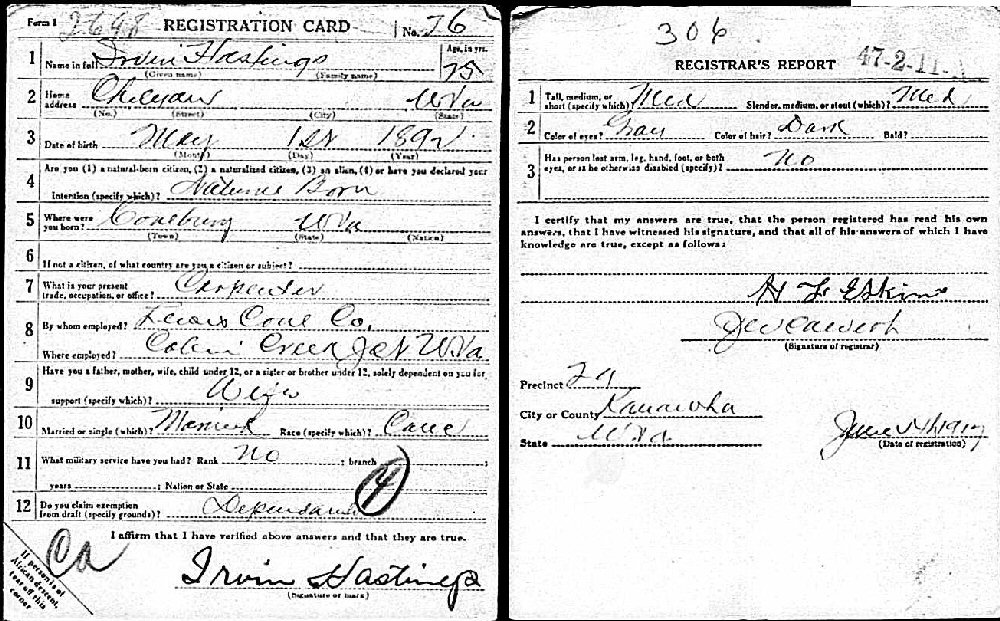 Form 1 2698 REGISTRATION CARD No. 26
1 Name in full Irvin Hastings Age, in yrs. 25
(Given name) (Family name)
2 Home address Chelyan WVa
(No.) (Street) (City) (State)
3 Date of birth May 1st 1892
(Month) (Day) (Year)
4 Are you (1) a natural-born citizen, (2) a naturalized citizen, (3) an alien, (4) or have you declared your
intention (specify which)? Born
5 Where were you born? Coalburg WVa
(Town) (State) (Nation)
6 If not a citizen, of what country are you a citizen or subject?
7 What is your present trade, occupation, or office? Carpenter
8 By whom employed? Co.
Where employed? Cabin Creek Jct WVa
9 Have you a father, mother, wife, child under 12, or a sister or brother under 12, solely dependent on you for
support (specify which)? Wife
10 Married or single (which)? Married Race (specify which)?
11 What military service have you had? Rank No ; branch ;
years ; Nation or State
12 Do you claim exemption from draft (specify grounds)?
14
I affirm that I have verified above answers and that they are true.
Ca
Irvin Hastings
(Signature or mark)
If person is of
African descent,
tear off this
corner
306
REGISTRAR'S REPORT 47-2-11
1 Tall, medium, or short (specify which)? Med Slender, medium, or stout (which)? Med
2 Color of eyes? Gray Color of hair? Dark Bald?
3 Has person lost arm, leg, hand, foot, or both eyes, or is he otherwise disabled (specify)? No
I certify that my answers are true, that the person registered has read his own
answers, that I have witnessed his signature, and that all of his answers of which I have
knowledge are true, except as follows:
(Signature of registrar)
Precinct
City or County Kanawha
State WVa
June 1917
(Date of registration)